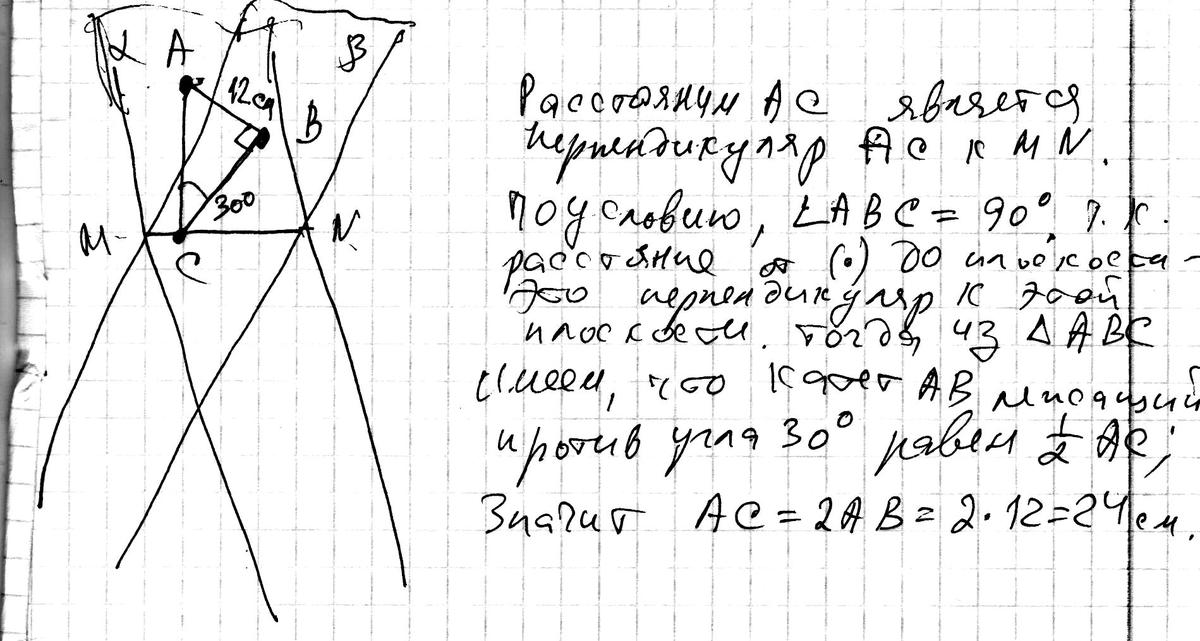 α
A
β
12 см
B
30°
M
N
C
Расстояним AC является
перпендикуляр AC к MN.
По условию, ∠ABC = 90°, т.к.
расстояние от (•) до плоскости -
это перпендикуляр к этой
плоскости. Тогда, из △ABC
имеем, что катет AB лежащий
против угла 30° равен 1/2 AC;
Значит AC = 2AB = 2·12=24 см.